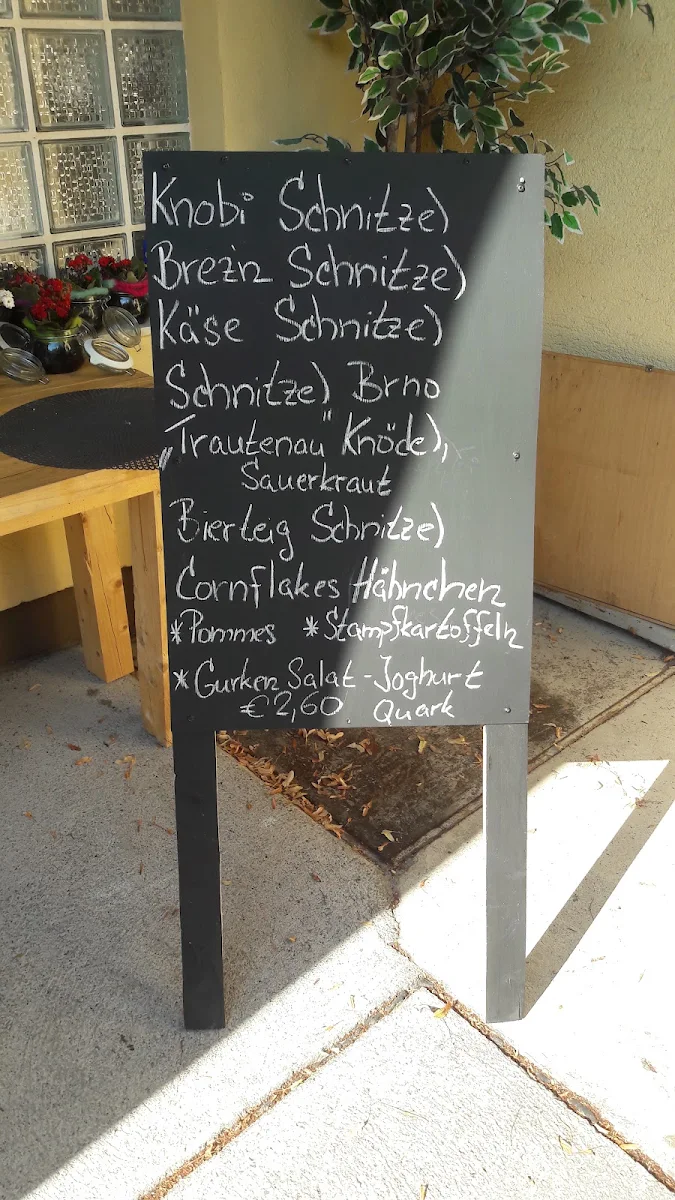 Knobi Schnitzel
Brez'n Schnitzel
Käse Schnitzel
Schnitzel Brno
„Trautenau" Knödel,
Sauerkraut
Bierteig Schnitzel
Cornflakes Hähnchen
*Pommes *Stampfkartoffeln
*Gurken Salat - Joghurt
€2,60 Quark